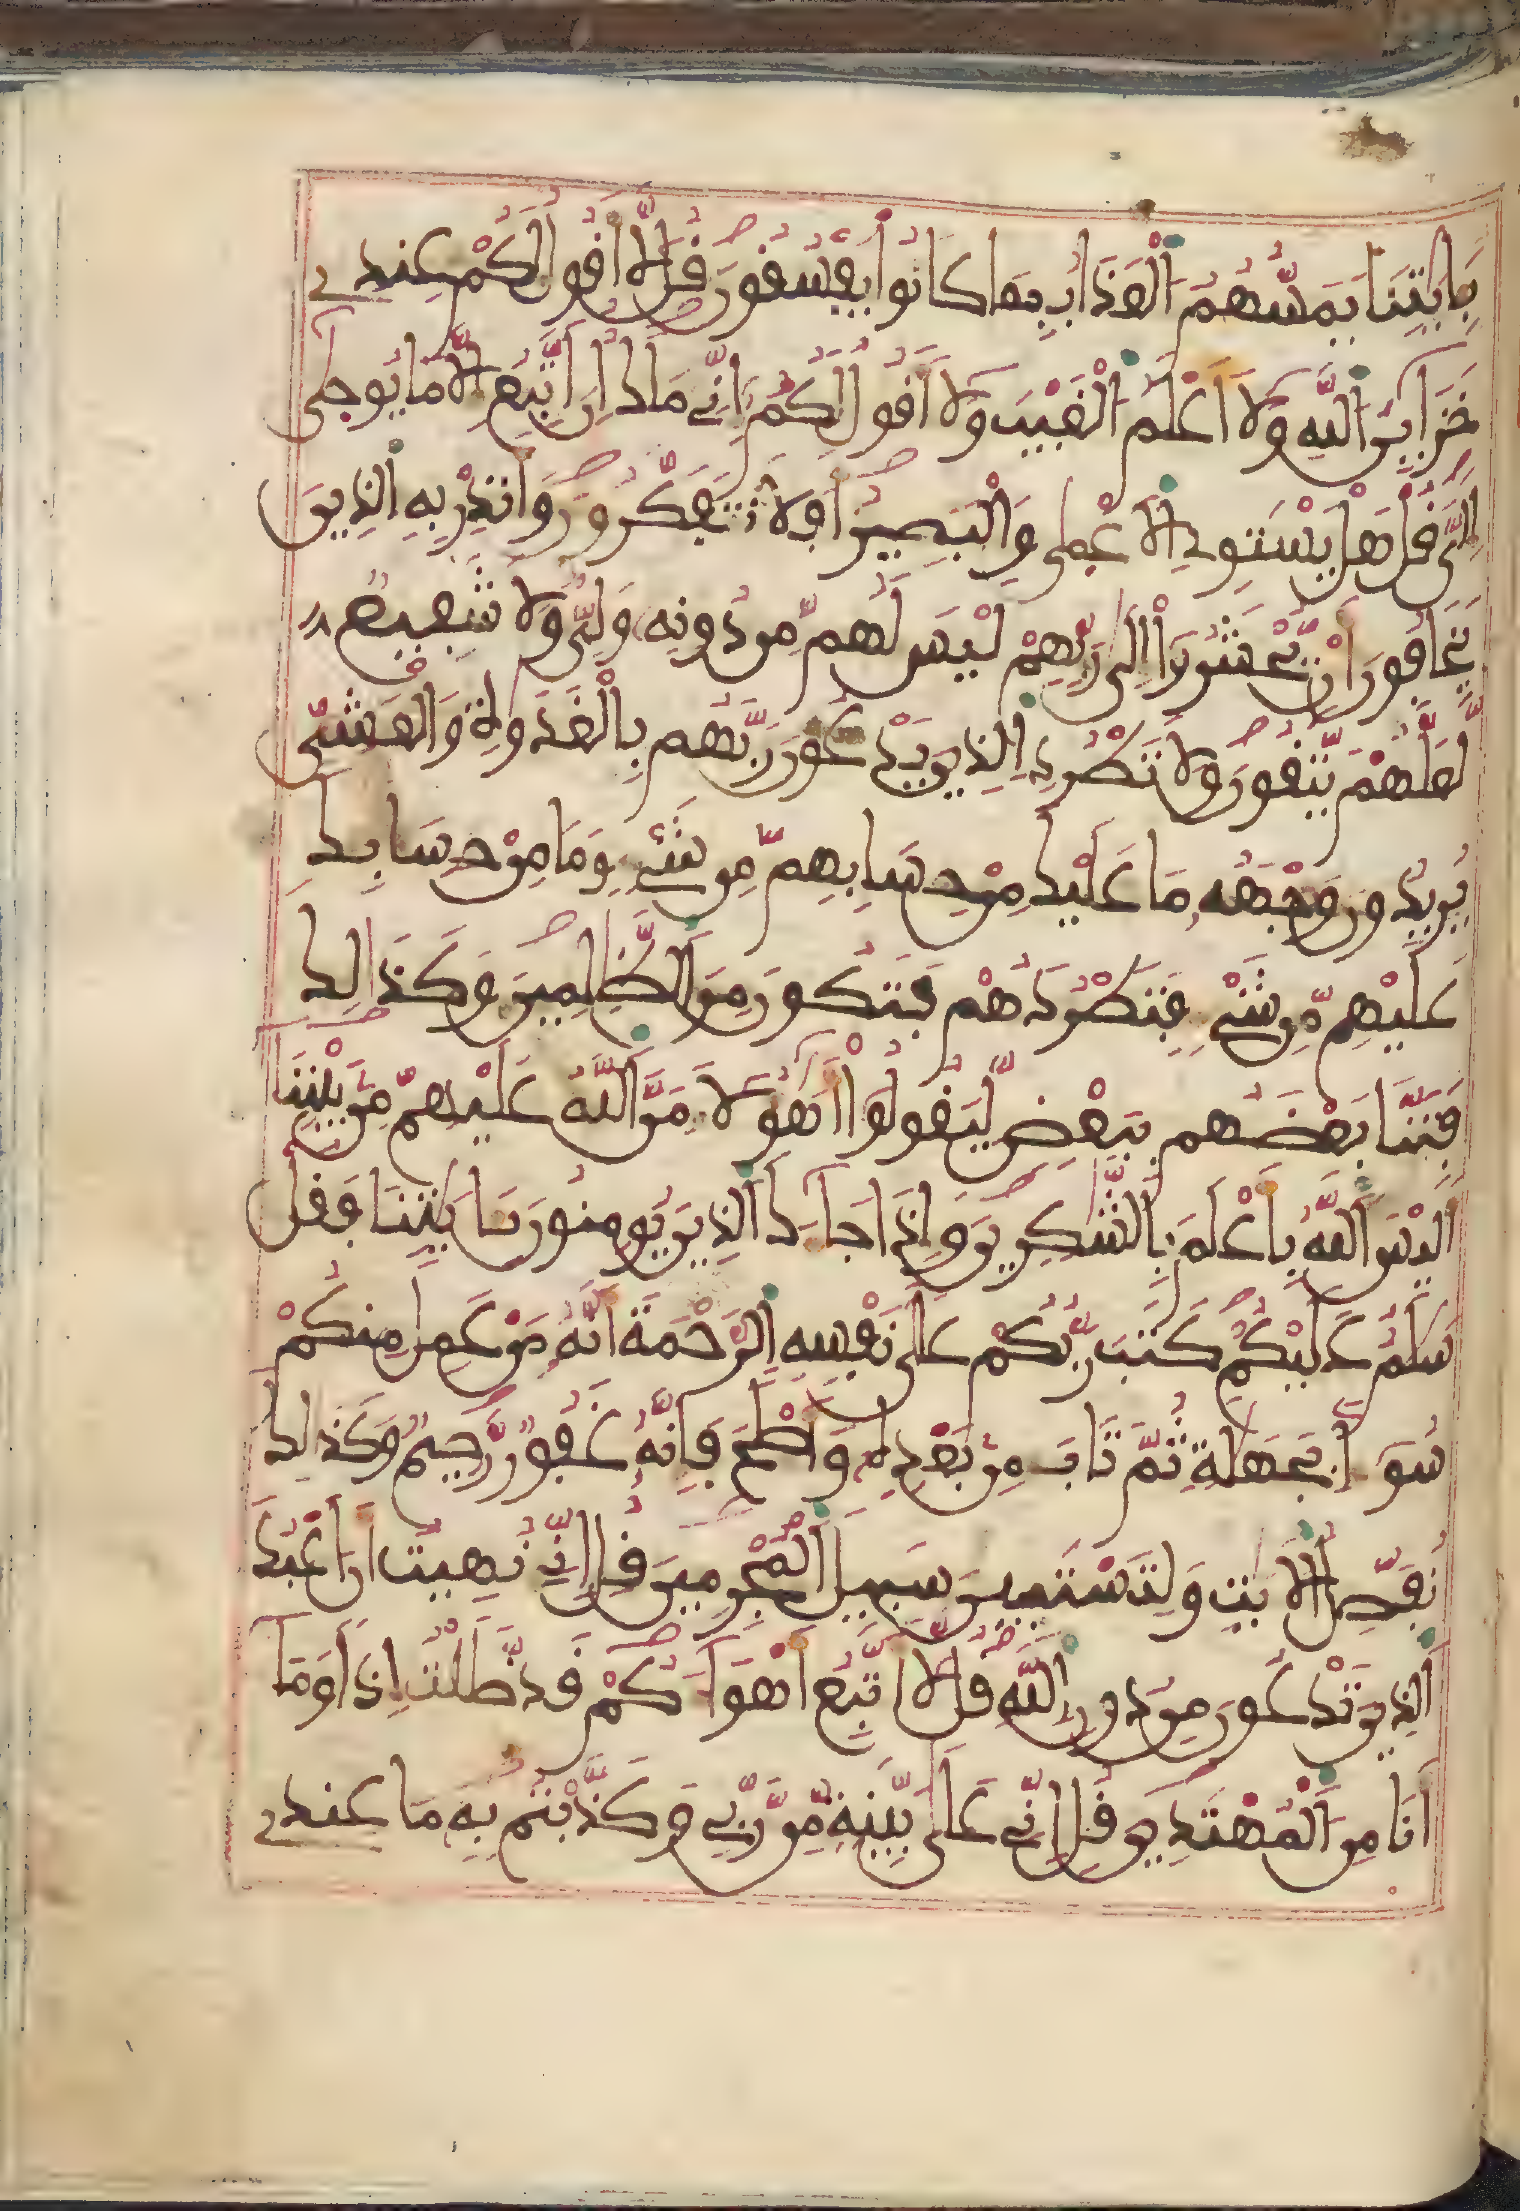 بِـَٔايَٰتِنَا يَمَسُّهُمُ الْعَذَابُ بِمَا كَانُوا يَفْسُقُونَ قُل لَّا أَقُولُ لَكُمْ عِندِے
خَزَآئِنُ اللَّهِ وَلَا أَعْلَمُ الْغَيْبَ وَلَا أَقُولُ لَكُمْ إِنِّے مَلَكٌ إِنْ أَتَّبِعُ إِلَّا مَا يُوحَىٰ
إِلَىَّ قُلْ هَلْ يَسْتَوِے الْأَعْمَىٰ وَالْبَصِيرُ أَفَلَا تَتَفَكَّرُونَ وَأَنذِرْ بِهِ الَّذِينَ
يَخَافُونَ أَنْ يُّحْشَرُوا إِلَىٰ رَبِّهِمْ لَيْسَ لَهُم مِّن دُونِهِ وَلِىٌّ وَلَا شَفِيعٌ
لَّعَلَّهُمْ يَتَّقُونَ وَلَا تَطْرُدِ الَّذِينَ يَدْعُونَ رَبَّهُم بِالْغَدَوٰةِ وَالْعَشِىِّ
يُرِيدُونَ وَجْهَهُ مَا عَلَيْكَ مِنْ حِسَابِهِم مِّن شَىْءٍ وَمَا مِنْ حِسَابِكَ
عَلَيْهِم مِّن شَىْءٍ فَتَطْرُدَهُمْ فَتَكُونَ مِنَ الظَّٰلِمِينَ وَكَذَٰلِكَ
فَتَنَّا بَعْضَهُم بِبَعْضٍ لِّيَقُولُوا أَهَٰٓؤُلَآءِ مَنَّ اللَّهُ عَلَيْهِم مِّنۢ بَيْنِنَا
أَلَيْسَ اللَّهُ بِأَعْلَمَ بِالشَّٰكِرِينَ وَإِذَا جَآءَكَ الَّذِينَ يُومِنُونَ بِـَٔايَٰتِنَا فَقُلْ
سَلَٰمٌ عَلَيْكُمْ كَتَبَ رَبُّكُمْ عَلَىٰ نَفْسِهِ الرَّحْمَةَ أَنَّهُ مَنْ عَمِلَ مِنكُمْ
سُوٓءًا بِجَهَٰلَةٍ ثُمَّ تَابَ مِنۢ بَعْدِهِ وَأَصْلَحَ فَإِنَّهُ غَفُورٌ رَّحِيمٌ وَكَذَٰلِكَ
نُفَصِّلُ الْأٓيَٰتِ وَلِتَسْتَبِينَ سَبِيلَ الْمُجْرِمِينَ قُلْ إِنِّے نُهِيتُ أَنْ أَعْبُدَ
الَّذِينَ تَدْعُونَ مِن دُونِ اللَّهِ قُل لَّا أَتَّبِعُ أَهْوَآءَكُمْ قَد ضَّلَلْتُ إِذًا وَمَا
أَنَا مِنَ الْمُهْتَدِينَ قُلْ إِنِّے عَلَىٰ بَيِّنَةٍ مِّن رَّبِّے وَكَذَّبْتُم بِهِ مَا عِندِے